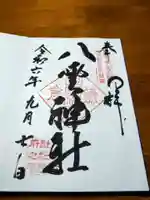 奉拝
八雲神社
令和六年九月七日